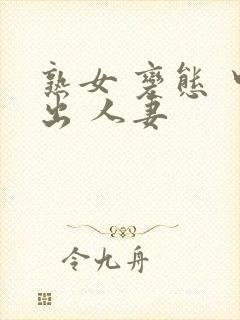 熟女 变態
出 人妻
令九舟